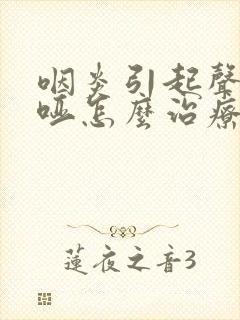 咽炎引起聲
啞怎麼治療
蓮夜之音3